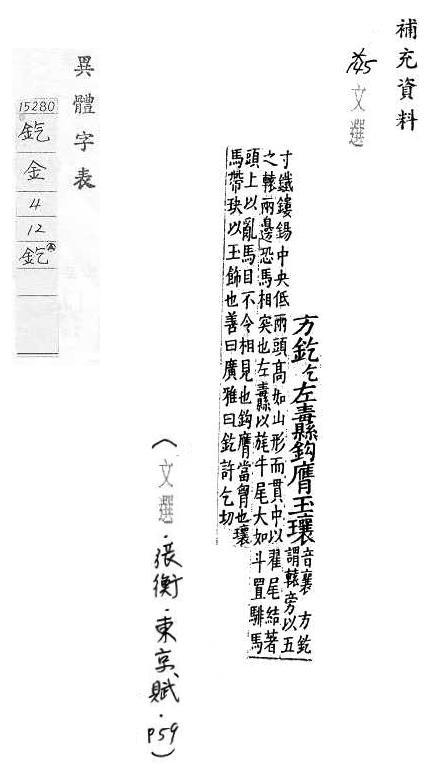 補充資料
文選
方釳乞左纛鈎膺玉瓖音襄 方釳
謂轅旁以五
寸鐵鏤錫中央低兩頭高如山形而貫中以翟尾結著
之轅兩邊恐馬相突也左纛以旄牛尾大如斗置騑馬
頭上以亂馬目不令相見也鈎膺當胷也瓖
馬帶玦以玉飾也善曰廣雅曰釳許乞切
(文選·張衡·東京賦·P59)
異體字表
15280
釳
金
4
12
釳